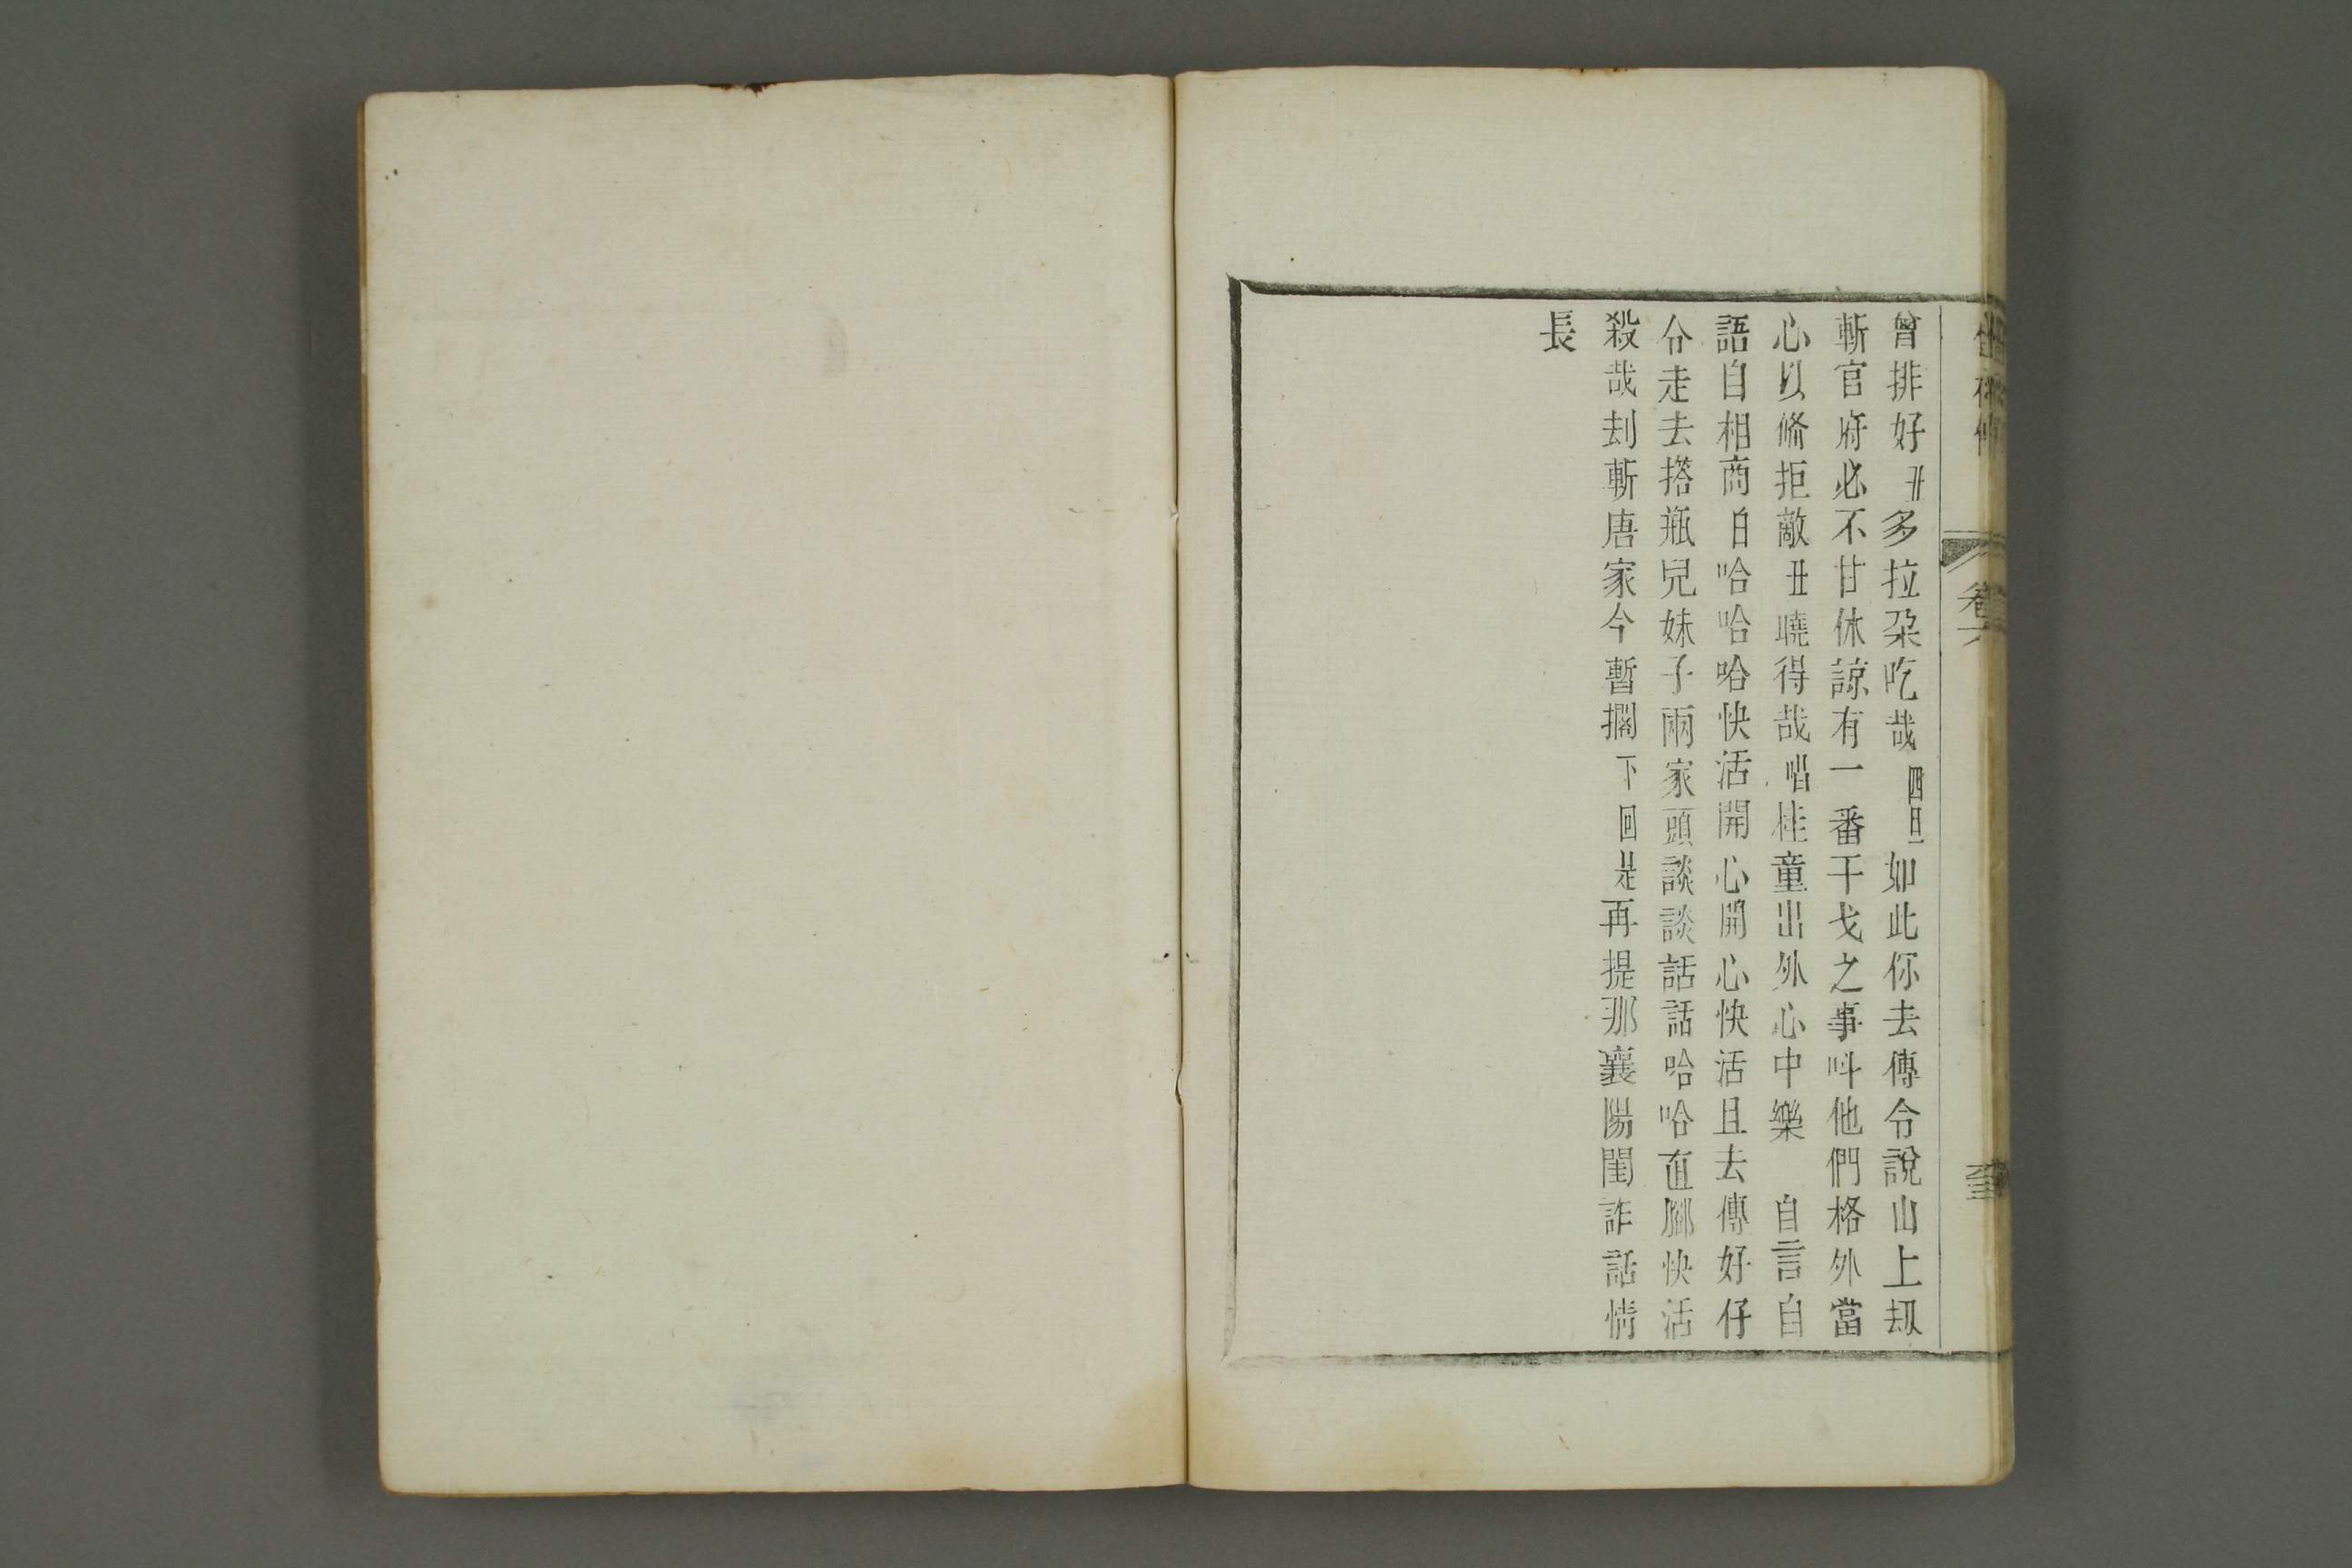 卷六
曾排好丑多拉朶吃哉四旦如此你去傳令說山上刼
斬官府必不甘休諒有一番干戈之事呌他們格外當
心以偹拒敵丑曉得哉唱桂童出外心中樂 自言自
語自相商白哈哈哈快活開心開心快活且去傳好仔
令走去搭瓶兒妹子兩家頭談談話話哈哈直腳快活
殺哉刦斬唐家今暫擱下回是再提那襄陽閨詐話情
長